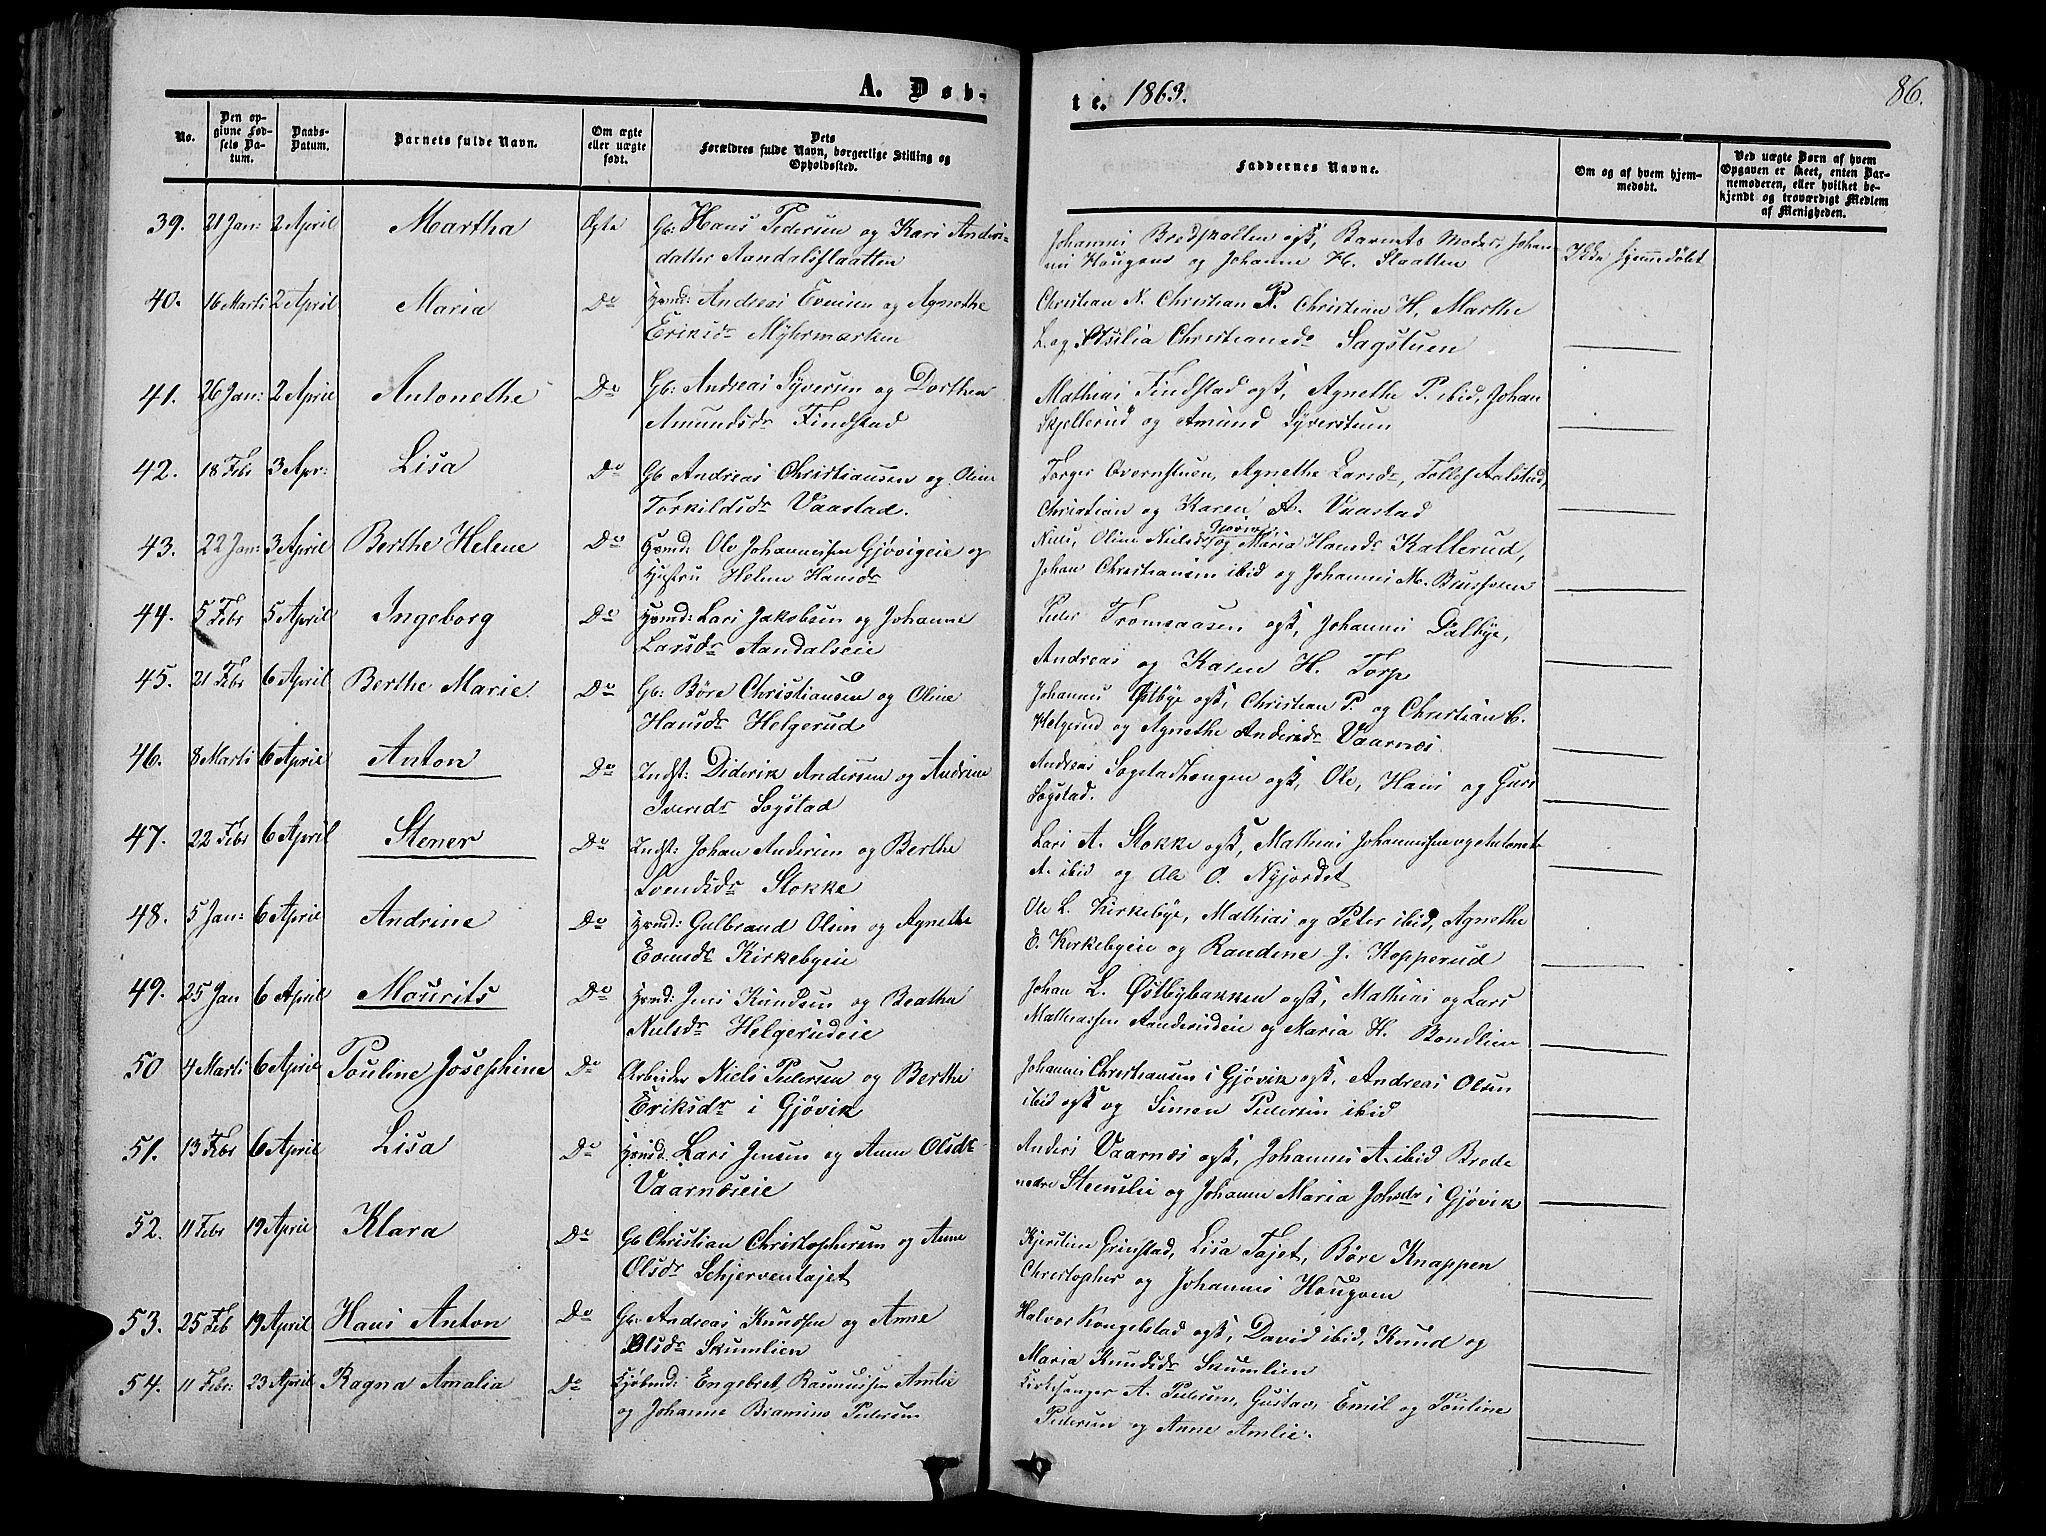 A. Døb-
te. 1863.
86.
No.
Den op-
givne Fød-
sels Da-
tum.
Daabs-
Datum.
Barnets fulde Navn.
Om ægte
eller uægte
født.
Dets
Forældres fulde Navn, borgerlige Stilling og
Opholdssted.
Faddernes Navne.
Om og af hvem hjem-
medøbt.
Ved uægte Børn af hvem
Opgaven er skeet, enten Bar-
nemoderen, eller hvilket be-
kjendt og troværdigt Medlem
af Menigheden.
39. 21 Jan: 2 April Martha Ægte Gb: Hans Pedersen og Kari Anders-
datter Aandalsflaatten
Johannes Bredskallen ogs, Barnets Moder, Johan-
nes Haugens og Johanne H. Slaatten
Ikke hjemmedøbt
40. 16 Marts 2 April Maria Do Hmd: Andreas Evensen og Agnethe
Eriksdr Myhrmarken
Christian N. Christian P. Christian H. Marthe
L. og Sisilia Christiansdr Sagstuen
41. 26 Jan: 2 April Antonethe Do Gb: Andreas Syversen og Dorthea
Amundsdr Findstad
Mathias Findstad ogs, Agnethe P. ibid, Johan
Skjellerud og Amund Syverstuen
42. 18 Febr 3 Apr: Lisa Do Gb Andreas Christiansen og Oline
Torkildsdr Vaastad.
Torger Overnstuen, Agnethe Larsdr, Tollef Aalstad,
Christian og Karen A. Vaastad
43. 22 Jan: 3 April Berthe Helene Do Hmd: Ole Johannessen Gjøvigeie og
Hustru Helene Hansdr
Niels, Oline Nielsdr Gjøvik og Maria Hansdr Kallerud,
Johan Christiansen ibid og Johannes M. Bursveen
44. 5 Febr 5 April Ingeborg Do Hmd: Lars Jakobsen og Johanne
Larsdr Aandalseie
Peder Tromsaasen ogs, Johannes Dalbye,
Andreas og Karen H. Torp
45. 21 Febr 6 April Berthe Marie Do Gb: Børe Christiansen og Oline
Hansdr Helgerud
Johannes Østbye ogs, Christian P. og Christian C.
Helgerud og Agnethe Andersdr Vaarnæs
46. 8 Marts 6 April Anton Do Indst: Diderik Andersen og Andrine
Iversdr Sogstad
Andreas Sogstadhaugen ogs, Ole, Hans og Guri
Sogstad.
47. 22 Febr 6 April Stener Do Indst: Johan Andersen og Berthe
Svendsdr Stokke
Lars A. Stokke ogs, Mathias Johannesen og Antonette
A. ibid og Ole O. Nyjordet
48. 5 Jan: 6 April Andrine Do Hmd: Gulbrand Olsen og Agnethe
Evensdr Kirkebyeie
Ole L. Kirkebye, Mathias og Peter ibid, Agnethe
E. Kirkebyeie og Randine J. Kopperud
49. 25 Jan 6 April Mourits Do Hmd: Jens Knudsen og Beathe
Nielsdr Helgerudeie
Johan L. Østbybakken ogs, Mathias og Lars
Mathiassen Aanderudeie og Maria H. Bondlien
50 4 Marts 6 April Pouline Josephine Do Arbeider Niels Pedersen og Berthe
Eriksdr i Gjøvik
Johannes Christiansen i Gjøvik ogs, Andreas Olsen
ibid ogs og Simen Pedersen ibid
51. 13 Febr 6 April Lisa Do Hmd: Lars Jensen og Anne Olsdr
Vaarnæseie
Anders Vaarnæs ogs, Johannes A. ibid Brede
nedre Steenslie og Johanne Maria Johsdr i Gjøvik
52. 11 Febr 19 April Klara Do Gb Christian Christophersen og Anne
Olsdr Schjerventajet
Kjerstine Grinstad, Lisa Tajet, Børe Knappen
Christopher og Johannes Hougom
53. 25 Feb 19 April Hans Anton Do Gb: Andreas Knudsen og Anne
Olsdr Skumlien
Halvor Kongelstad ogs, David ibid, Knud og
Maria Knudsdr Skumlien
54. 11 Febr: 23 April Ragna Amalia Do Kjøbmd: Engebret Rasmussen Amlie
og Johanne Bramine Pedersen
Kirkesanger A. Pedersen, Gustav, Emil og Pouline
Pedersen og Anne Amlie.